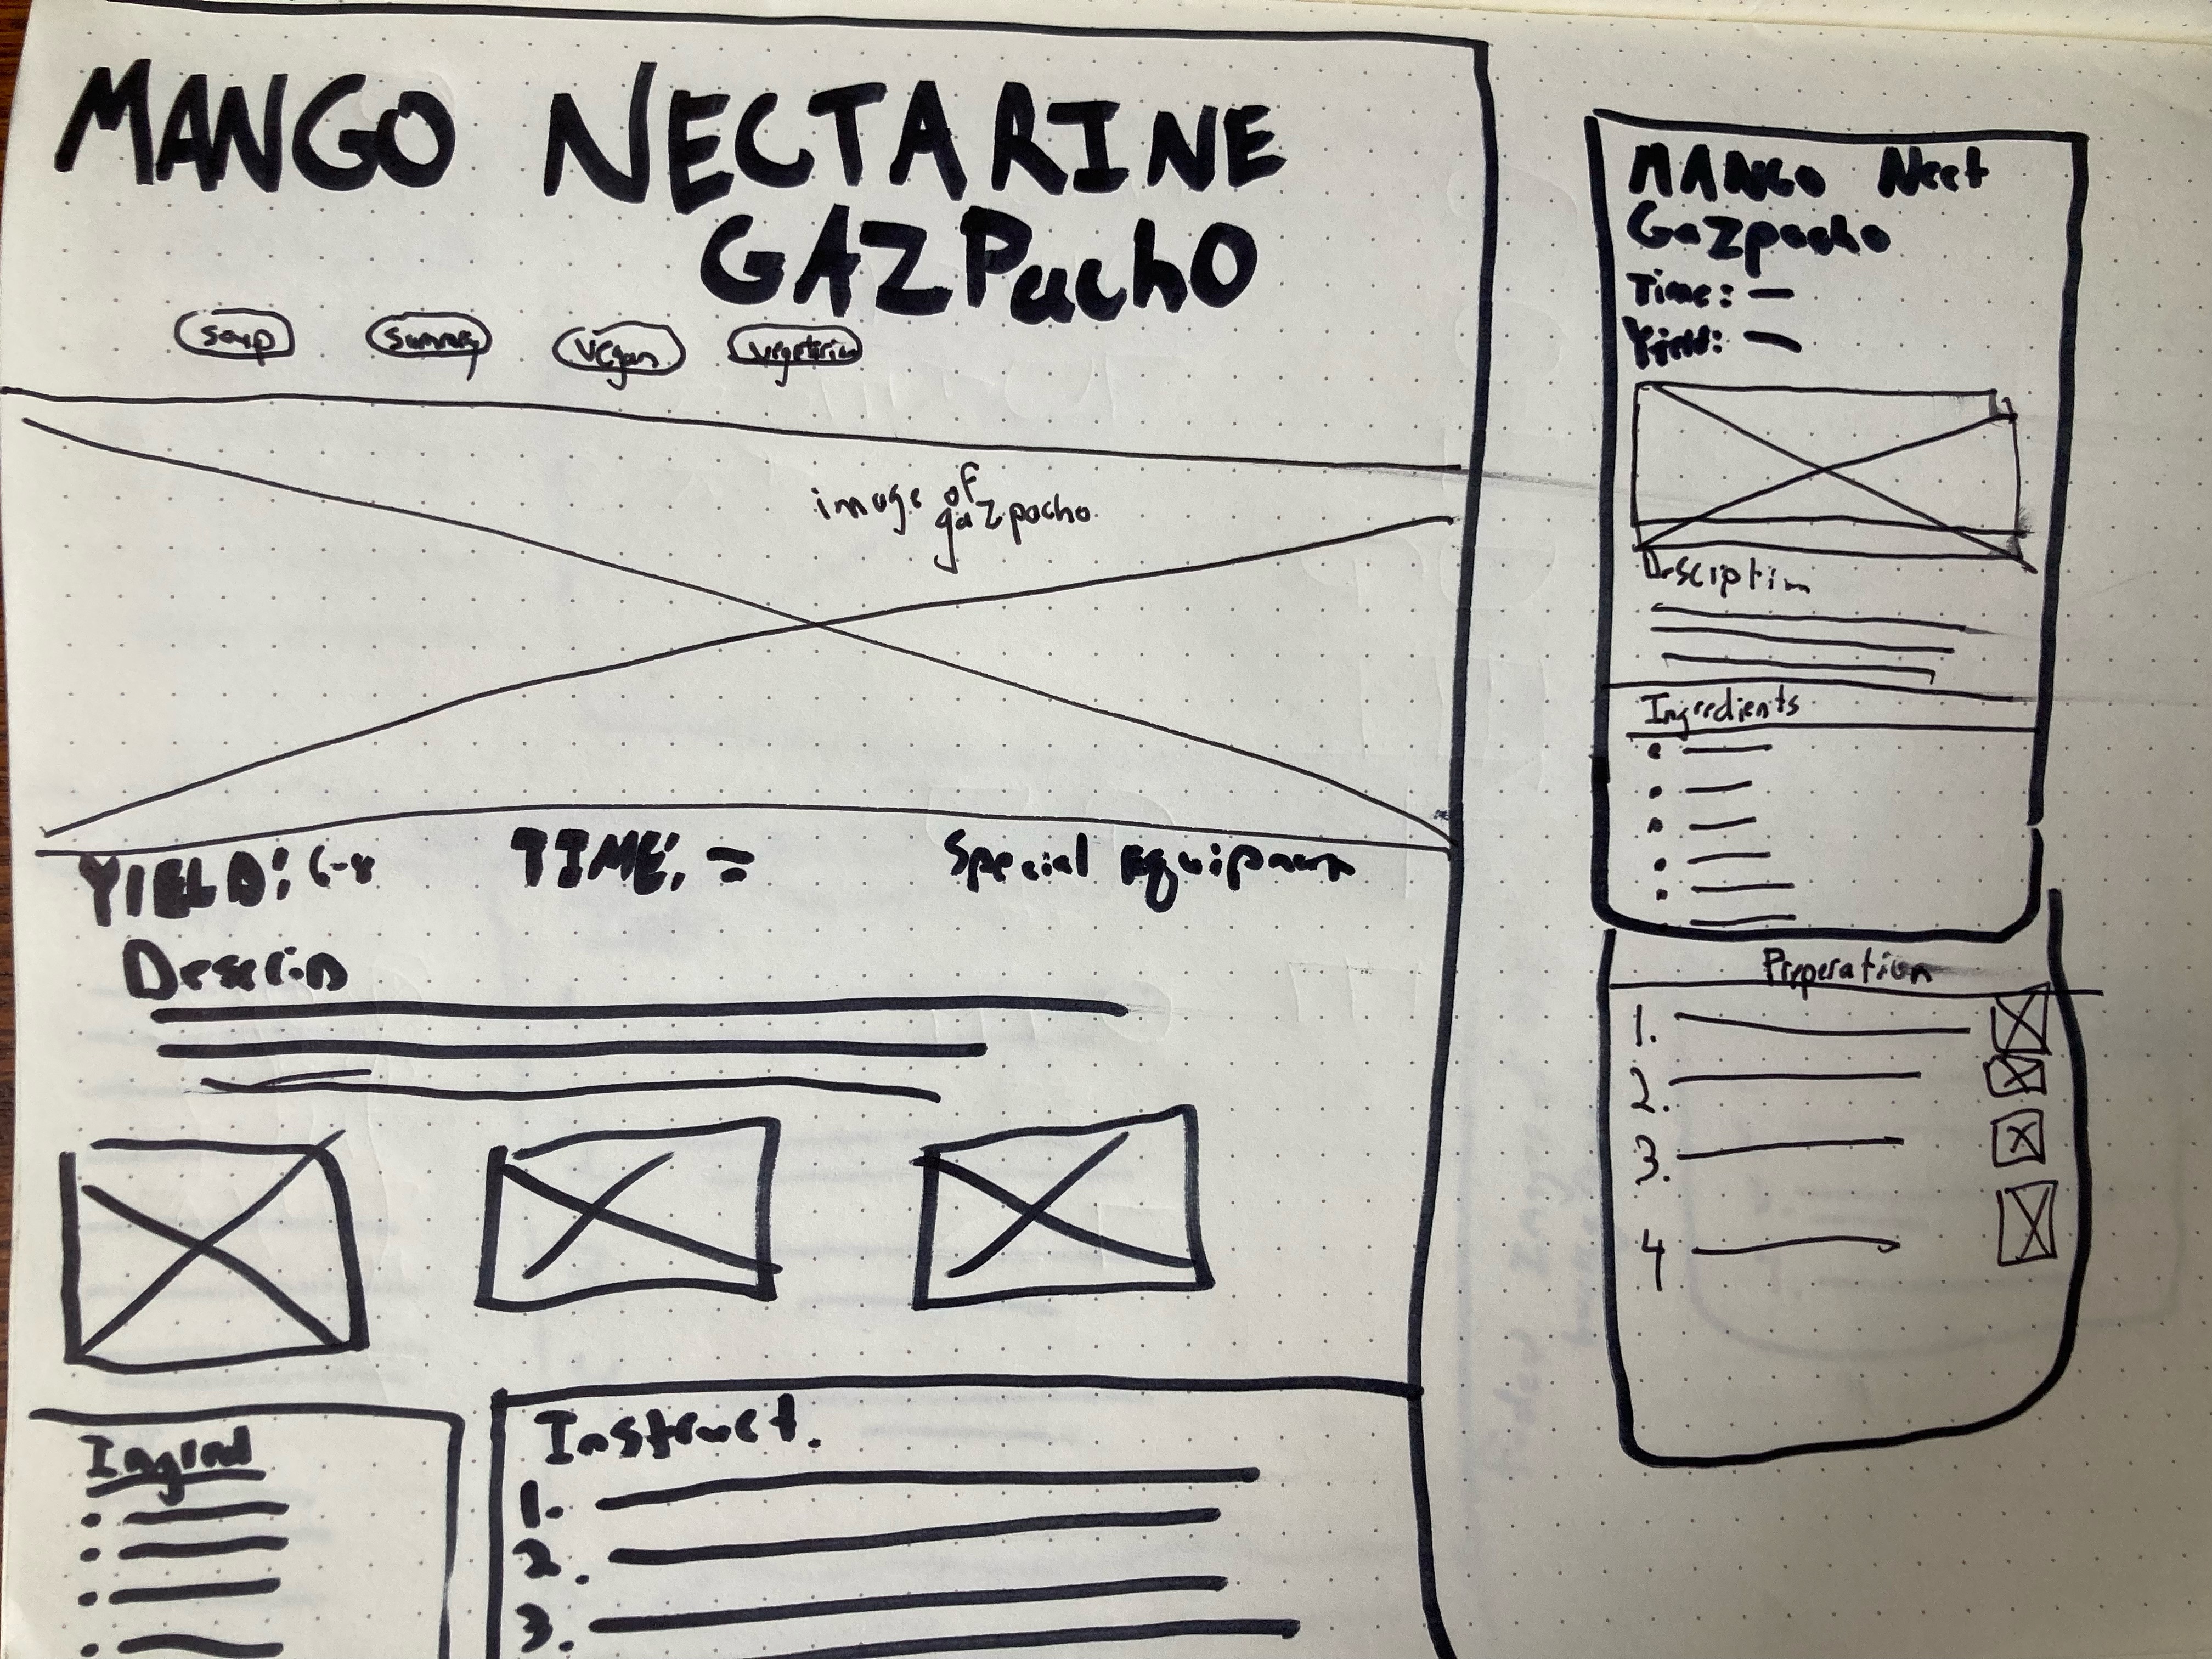 MANGO NECTARINE
GAZPachO
soup summer vegan vegetarian
image of
gazpacho
YIELD: 6-8 TIME: Special Equipment
Descrip
Ingred
Instruct.
1.
2.
3.
MANGO Nect
Gazpacho
Time: —
Yield: —
Desciption
Ingredients
Preperation
1.
2.
3.
4